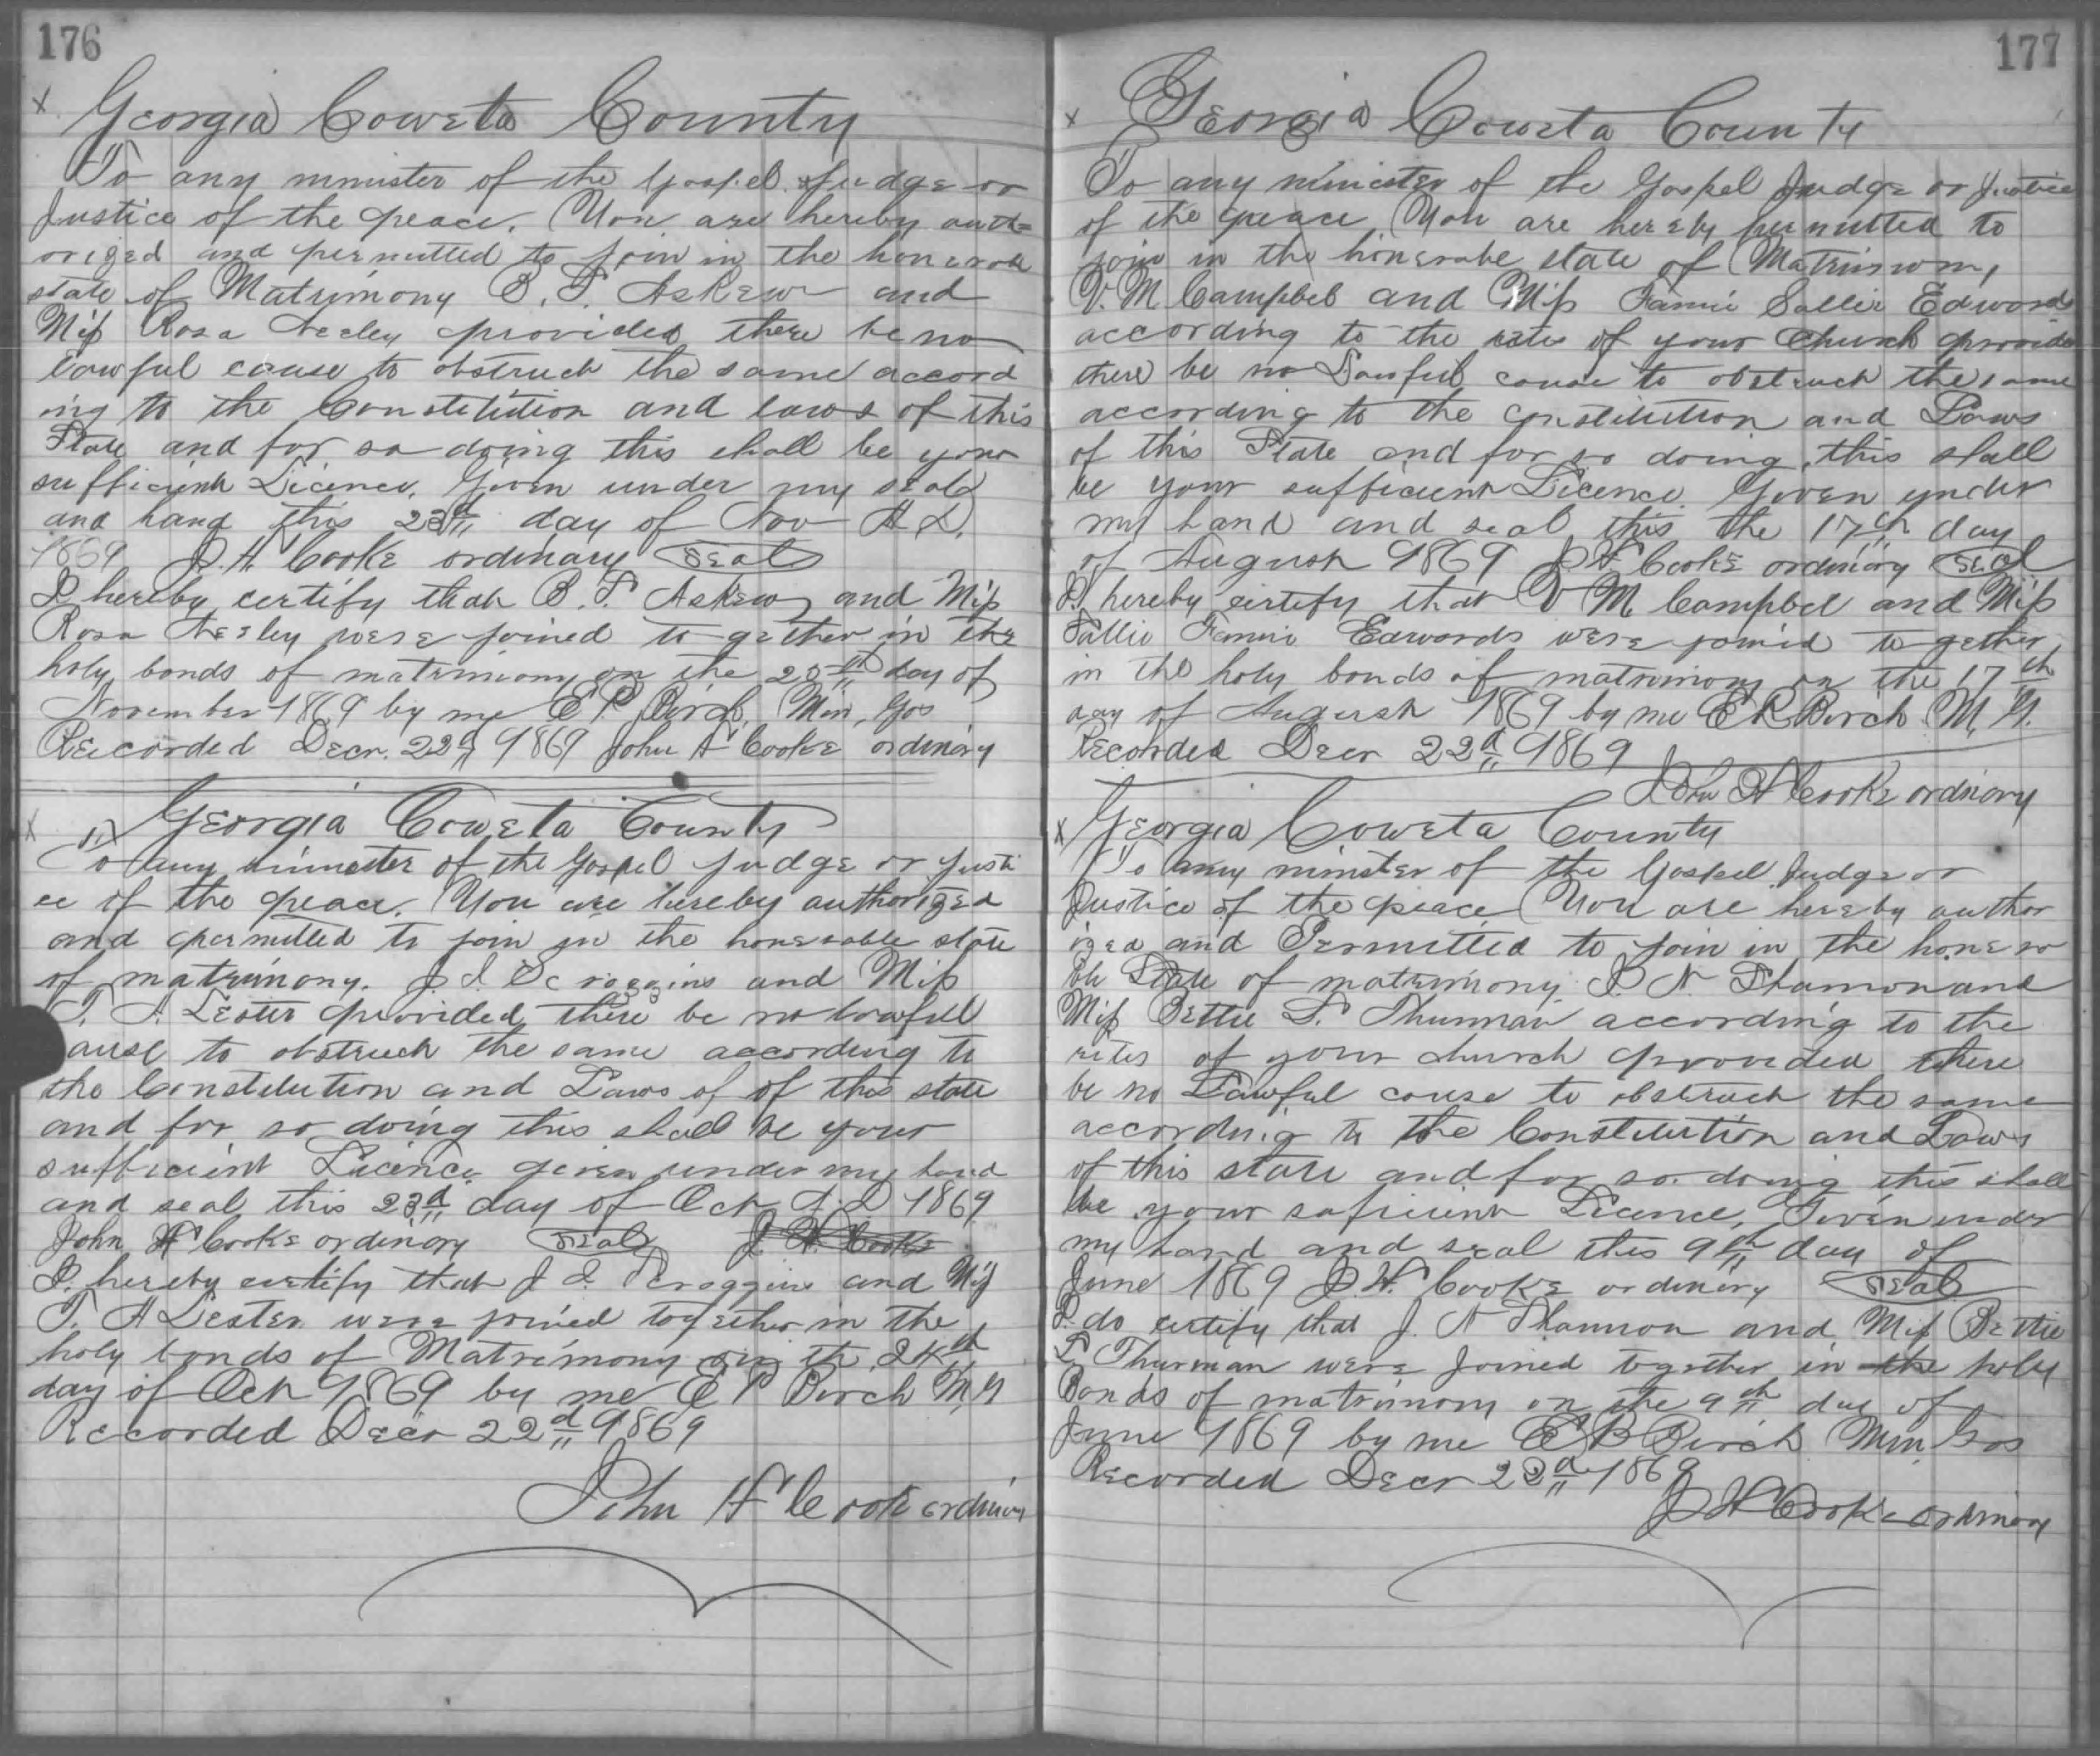 176
Georgia Coweta County
To any minister of the Gospel Judge or
Justice of the peace. You are hereby auth=
orized and permitted to join in the honerabl
state of Matrimony B. T. Askew and
Miss Rosa Neeley provided there be no
lawful cause to obstruck the same accord
ing to the Constitution and laws of this
State and for so doing this shall be your
sufficient Licence. Given under my seal
and hand this 23d day of Nov A D.
1869 J. H Cooke ordinary Seal
I hereby certify that B. T. Askew and Miss
Rosa Neeley were joined to gether in the
holy bonds of matrimony on the day of
November 1869 by me E P. Birch, Min, Gos
Recorded Decr. 22d 1869 John H Cooke ordinary
Georgia Coweta County
To any minister of the Gospel judge or justi
ce of the peace. You are hereby authorized
and permitted to join in the honerable state
of matrimony. J. I. Scroggins and Miss
T. A. Lester provided there be no lawfull
ause to obstruck the same according to
the Constitution and Laws of of this state
and for so doing this shall be your
sufficient Licence given under my hand
and seal this 23d day of Oct A. D 1869
John H Cooke ordinary Seal J. H. Cooke
I. hereby certify that J I. Scroggins and Miss
T. A Lester were joined together in the
holy bonds of Matrimony on the 24th
day of Oct 1869 by me E P Birch M, G
Recorded Decr 22d 1869
John H Cook ordinary
177
Georgia Coweta County
To any minister of the Gospel Judge or Justice
of the peace You are hereby permitted to
join in the honerabe state of Matrimony,
V. M Campbel and Miss Fannie Sallie Edwards
according to the rites of your Church provide
there be no Lawful cause to obstruck the same
according to the constitution and Laws
of this State and for so doing, this shall
be your sufficient Licence Given under
my hand and seal this the 17th day
of August 1869 J H Cooke ordinary Seal
I. hereby certify that V M. Campbel and Miss
Sallie Fannie Edwards were joined to gether
in the holy bonds of matrimony on the 17th
day of August 1869 by me E P Birch M, G.
Recorded Decr 22d 1869
John H Cooke ordinary
Georgia Coweta County
To any minister of the Gospel Judge or
Justice of the peace You are hereby author
ized and Permitted to join in the honera
ble State of matrimony J. N. Shannon and
Miss Bettie T. Thurman according to the
rites of your church provided there
be no Lawful cause to obstruck the same
according to the Constitution and Laws
of this state and for so doing this shall
be your saficient Licence, Given under
my hand and seal this 9th day of
June 1869 J. H. Cooke ordinary Seal
I. do certify that J. N Shannon and Miss Bettie
T. Thurman were Joined together in the holy
Bonds of matrimony on the 9th day of
June 1869 by me E P Birch Min, Gos
Recorded Decr 22d 1869
J H Cooke ordinary